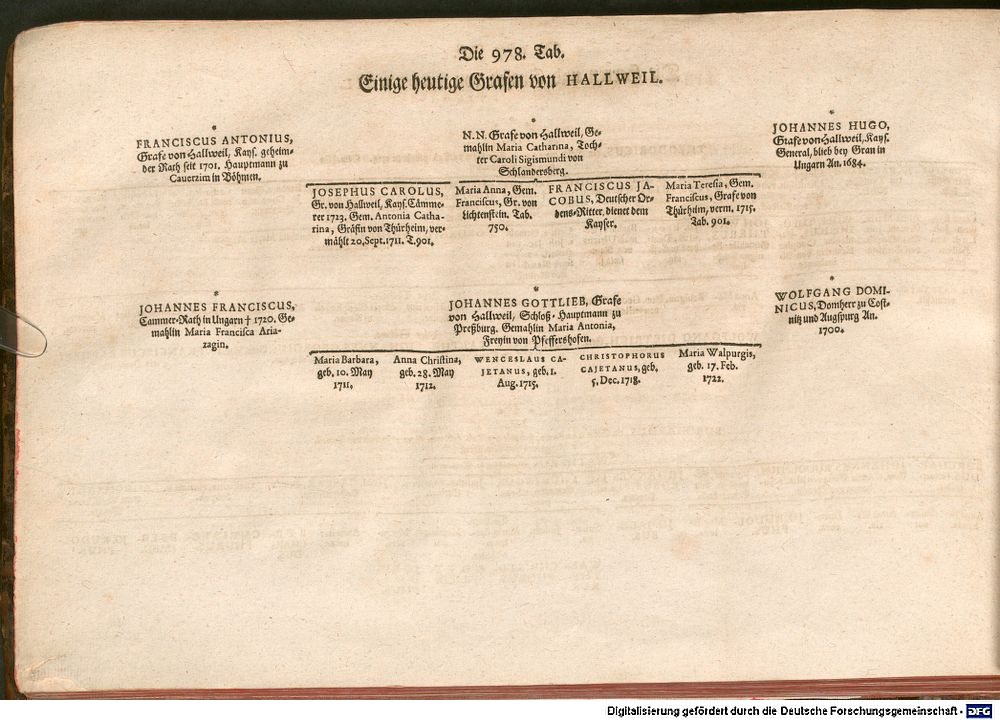 Die 978. Tab.
Einige heutige Grafen von HALLWEIL.
*
FRANCISCUS ANTONIUS,
Grafe von Hallweil, Kays. geheim-
der Rath seit 1701. Hauptmann zu
Cauerzim in Böhmen.
*
N.N. Grafe von Hallweil, Ge-
mahlin Maria Catharina, Toch-
ter Caroli Sigismundi von
Schlandersberg.
*
JOHANNES HUGO,
Grafe von Hallweil, Kays.
General, blieb bey Gran in
Ungarn An. 1684.
JOSEPHUS CAROLUS,
Gr. von Hallweil, Kays. Cämme-
rer 1723. Gem. Antonia Catha-
rina, Gräfin von Thürheim, ver-
mählt 20. Sept. 1711. T. 901.
Maria Anna, Gem.
Franciscus, Gr. von
Lichtenstein. Tab.
750.
FRANCISCUS JA-
COBUS, Deutscher Or-
dens-Ritter, dienet dem
Kayser.
Maria Teresia, Gem.
Franciscus, Grafe von
Thürheim, verm. 1715.
Tab. 901.
*
JOHANNES FRANCISCUS,
Cammer-Rath in Ungarn † 1720. Ge-
mahlin Maria Francisca Aria-
zagin.
*
JOHANNES GOTTLIEB, Grafe
von Hallweil, Schloß-Hauptmann zu
Preßburg. Gemahlin Maria Antonia,
Freyin von Pfeffershofen.
*
WOLFGANG DOMI-
NICUS, Domherr zu Cost-
nitz und Augspurg An.
1700.
Maria Barbara,
geb. 10. May
1711.
Anna Christina,
geb. 28. May
1712.
WENCESLAUS CA-
JETANUS, geb. 1.
Aug. 1715.
CHRISTOPHORUS
CAJETANUS, geb.
5. Dec. 1718.
Maria Walpurgis,
geb. 17. Feb.
1722.
Digitalisierung gefördert durch die Deutsche Forschungsgemeinschaft - DFG